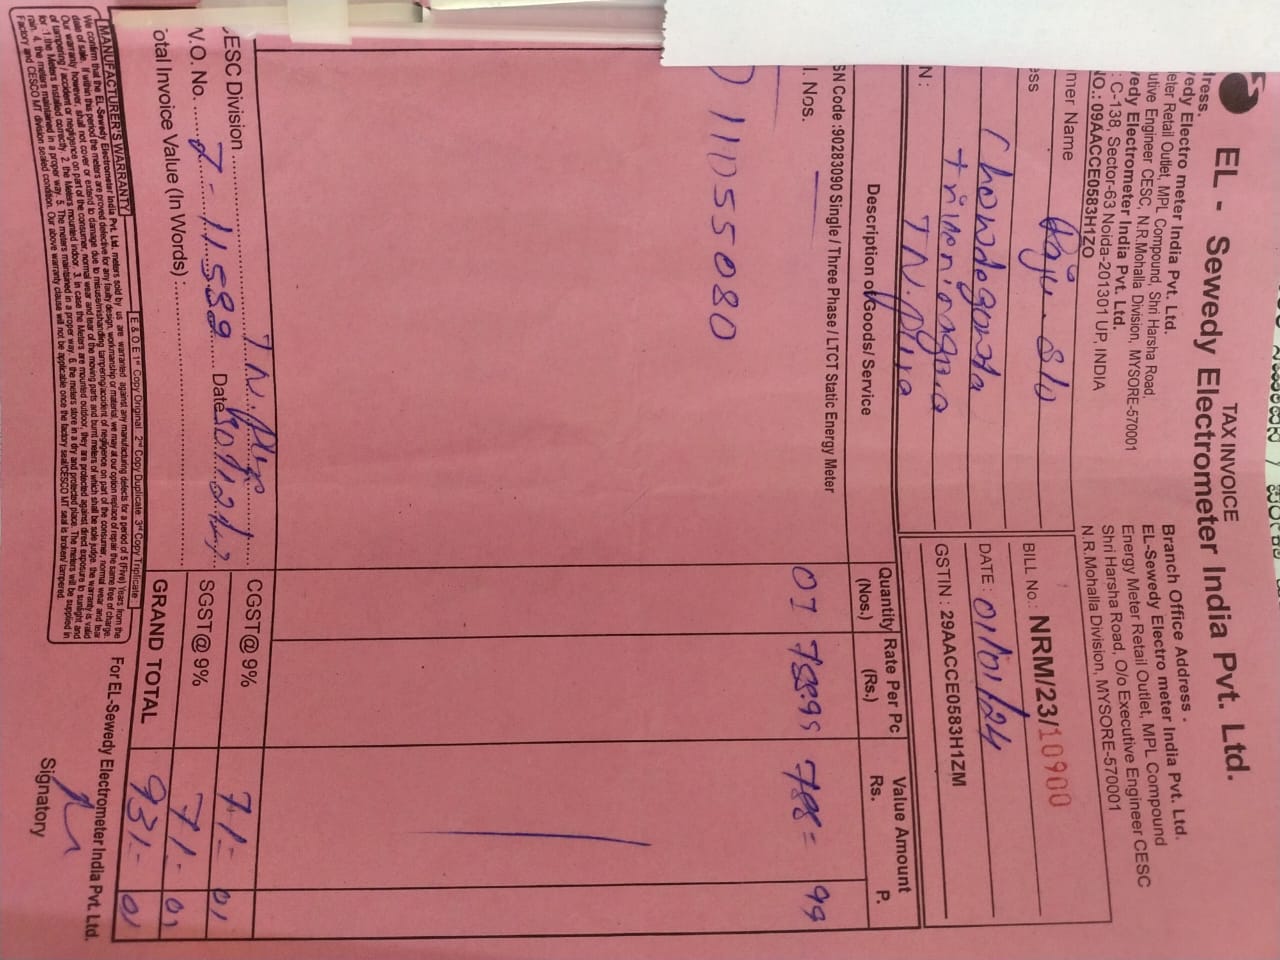 TAX INVOICE
EL - Sewedy Electrometer India Pvt. Ltd.
dress.
edy Electro meter India Pvt. Ltd.
eter Retail Outlet, MPL Compound, Shri Harsha Road,
utive Engineer CESC, N.R.Mohalla Division, MYSORE-570001
edy Electrometer India Pvt. Ltd.
: C-138, Sector-63 Noida-201301 UP, INDIA
NO.: 09AACCE0583H1ZO
Branch Office Address -
EL-Sewedy Electro meter India Pvt. Ltd.
Energy Meter Retail Outlet, MPL Compound
Shri Harsha Road, O/o Executive Engineer CESC
N.R.Mohalla Division, MYSORE-570001
mer Name Raju. S/o
ess Chowdegowda
T.N.pura
N:
BILL No.: NRM/23/10900
DATE: 01/01/24
GSTIN : 29AACCE0583H1ZM
Description of Goods/ Service
Quantity (Nos.)
Rate Per Pc (Rs.)
Value Amount
Rs. P.
SN Code :90283090 Single / Three Phase / LTCT Static Energy Meter
l. Nos.
01 788.99 788= 99
) 11D55080
ESC Division T.N.pura
V.O. No. 7-11589 Date 30.12.
otal Invoice Value (In Words) :
CGST@ 9% 71- 01
SGST@ 9% 71- 01
GRAND TOTAL 931- 01
E & O E 1st Copy Original 2nd Copy Duplicate 3rd Copy Triplicate
MANUFACTURER'S WARRANTY
We confirm that the EL-Sewedy Electrometer India Pvt. Ltd. meters sold by us are warranted against any manufacturing defects for a period of 5 (Five) Years from the
date of sale. If within this period the meters are proved defective for any faulty design, workmanship or material, we may at our option replace of repair the same free of charge.
Our warranty however, shall not cover or extend to damage due to misuse/mishandling tampering/accident of negligence on part of the consumer, normal wear and tear
of tampering / accident or negligence on part of the consumer, normal wear and tear of the moving parts and burnt meters of which shall be sole judge. the warranty is valid
for :1.the Meters installed correctly. 2. the Meters mounted indoor. 3. In case the Meters are mounted outdoor, they are protected against direct exposure to sunlight and
rain. 4. the meters maintained in a proper way. 5. The meters maintained in a proper way. 6. the meters store in a dry and protected place. The meters will be supplied in
Factory and CESCO MT division sealed condition. Our above warranty clause will not be applicable once the factory seal/CESCO MT seal is broken/ tampered.
For EL-Sewedy Electrometer India Pvt. Ltd.
Signatory